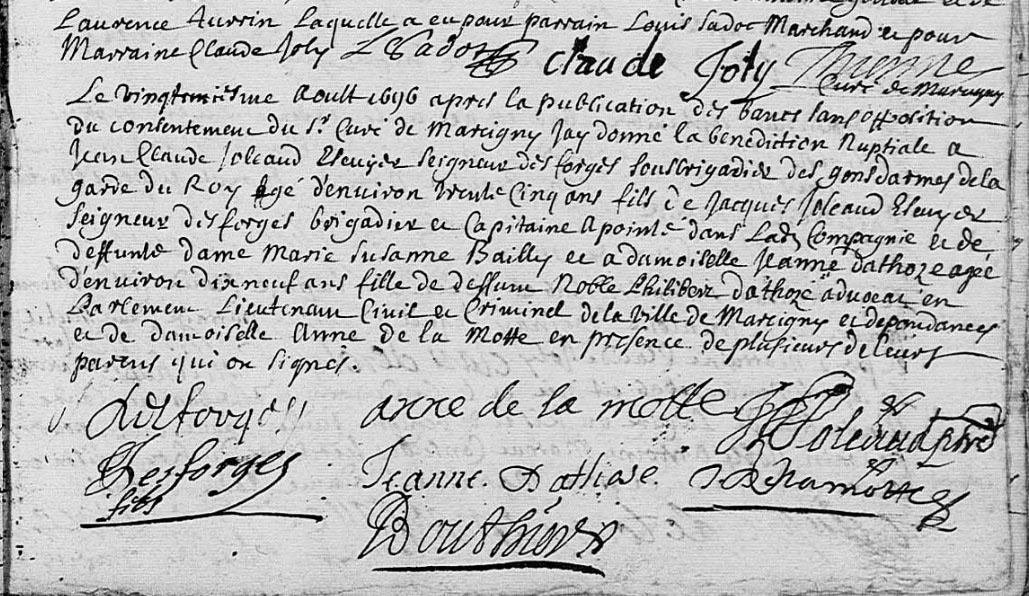 Laurence Aurrin Laquelle a eu pour parrain Louis Sadoc Marchand et pour
Marraine Claude Joly LSadoc Claude Joly Thienne
Curé de Marcigny
Le vingtuniesme Aoust 1696 apres la publication des bancs sans opposition
du consentement du Sr Curé de Marcigny Jay donné la benediction Nuptiale a
Jean Claude Joleaud Escuyer Seigneur des forges sousbrigadier des gensdarmes de la
garde du Roy agé d'environ trente Cinq ans fils de Jacques Joleaud Escuyer
Seigneur des forges brigadier et Capitaine apointé dans Lade Compagnie et de
deffunte dame Marie Susanne Bailly et a damoiselle Jeanne dathoze agée
d'environ dixneuf ans fille de deffunt Noble Philibert dathoze advocat en
Parlement Lieutenant Civil et Criminel de la ville de Marcigny et dependances
et de damoiselle Anne de la Motte en presence de plusieurs de leurs
parens qui on signes.
Desforges anne de la motte Joleaud ptre
Desforges Jeanne Dathose Delamotte
fils
Bouthier